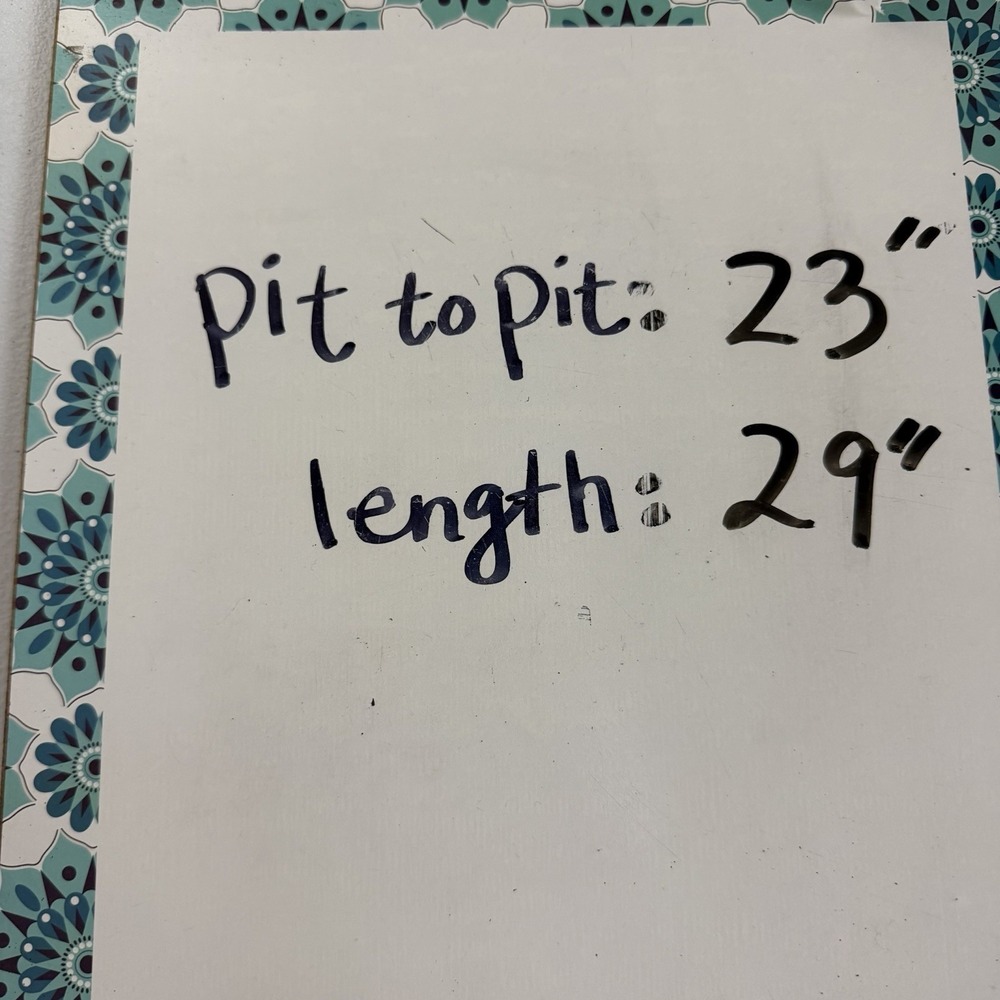 pit to pit: 23"
length: 29"